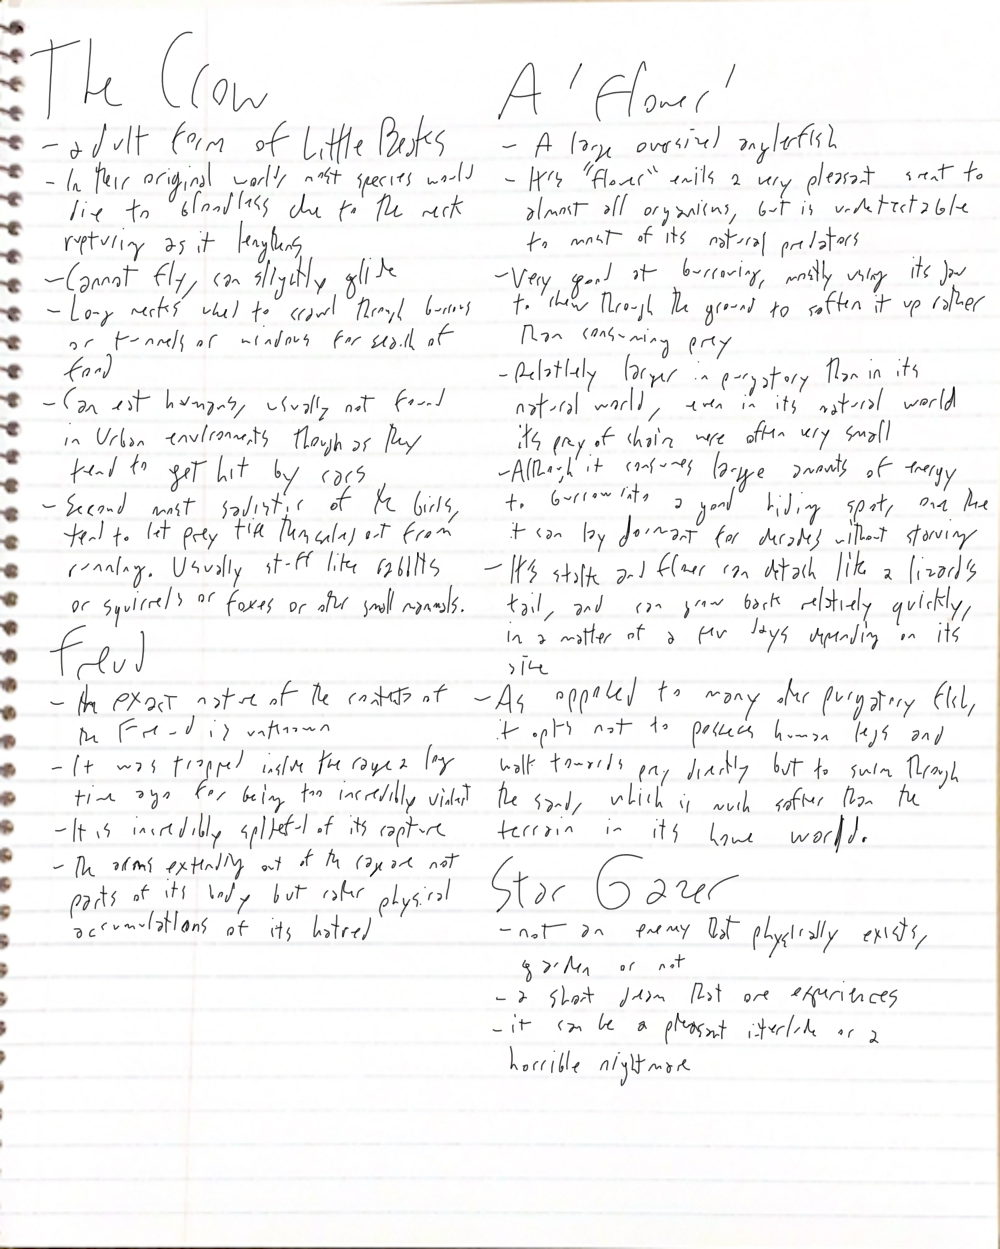 The Crow
- adult form of Little Beaks
- In their original world, most species would
die to bloodloss due to the neck
rupturing as it lengthens
- Cannot fly, can slightly glide
- Long necks used to crawl through burrows
or tunnels or windows for search of
food
- Can eat humans, usually not found
in Urban environments though as they
tend to get hit by cars
- Second most sadistic of the birds,
tend to let prey tire themselves out from
running. Usually stuff like rabbits
or squirrels or foxes or other small mammals.
Freud
- the exact nature of the contents of
the Freud is unknown
- It was trapped inside the cage a long
time ago for being too incredibly violent
- It is incredibly spiteful of its capture
- The arms extending out of the cage are not
parts of its body but rather physical
accumulations of its hatred
A 'Flower'
- A large oversized anglerfish
- It's "flower" emits a very pleasant scent to
almost all organisms, but is undetectable
to most of its natural predators
- Very good at burrowing, mostly using its jaw
to chew through the ground to soften it up rather
than consuming prey
- Relatively larger in purgatory than in its
natural world, even in its natural world
its prey of choice were often very small
- Although it consumes large amounts of energy
to burrow into a good hiding spot, one there
it can lay dormant for decades without starving
- It's stalk and flower can detach like a lizard's
tail, and can grow back relatively quickly,
in a matter of a few days depending on its
size
- As opposed to many other purgatory fish,
it opts not to possess human legs and
walk towards prey directly but to swim through
the sand, which is much softer than the
terrain in its home world.
Star Gazer
- not an enemy that physically exists,
garden or not
- a short dream that one experiences
- it can be a pleasant interlude or a
horrible nightmare